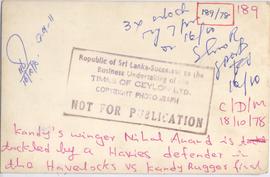 189/78
189
3x
16/10
Republic of Sri Lanka-Successor to the
Business Undertaking of the
TIMES OF CEYLON LTD.
COPYRIGHT PHOTOGRAPH
NOT FOR PUBLICATION
16/10
C/D/M
18/10/78
Kandy's winger Nihal Anand is
tackled by a Havies defender in
the Havelocks vs Kandy Rugger final